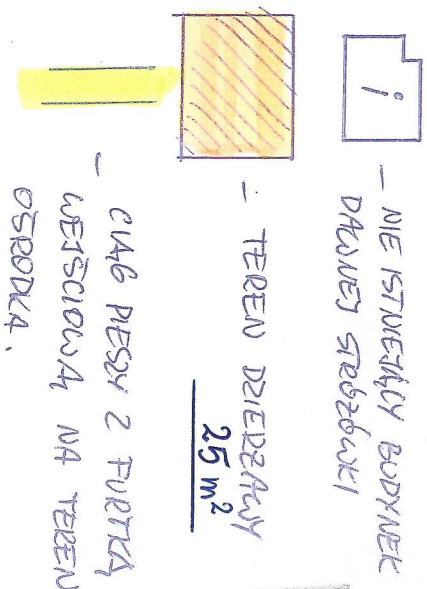 i
– NIE ISTNIEJĄCY BUDYNEK
DAWNEJ STRÓŻÓWKI
– TEREN DZIERŻAWY
25 m²
– CIĄG PIESZY Z FURTKĄ
WEJŚCIOWĄ NA TEREN
OŚRODKA.